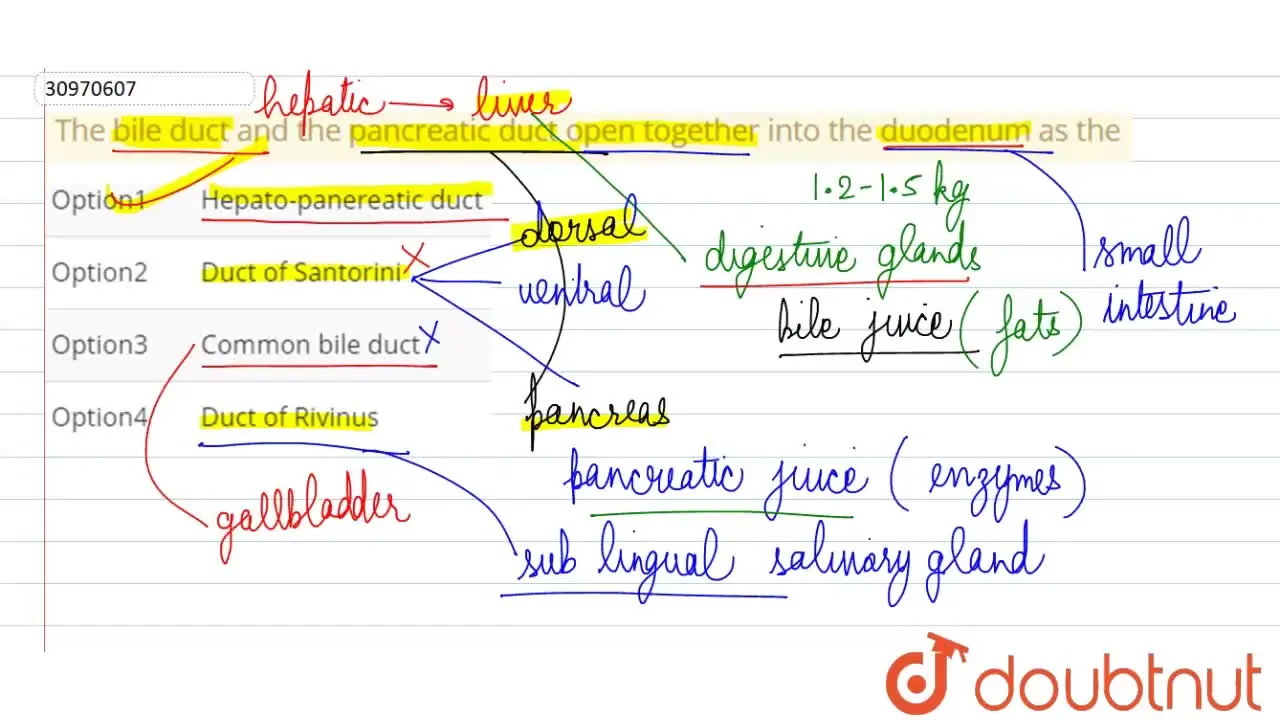 30970607
hepatic → liver
The bile duct and the pancreatic duct open together into the duodenum as the
1.2-1.5 kg
Option1 Hepato-panereatic duct
dorsal
digestive glands
small
intestine
Option2 Duct of Santorini X
ventral
bile juice (fats)
Option3 Common bile duct X
Option4 Duct of Rivinus
pancreas
pancreatic juice (enzymes)
gallbladder
sub lingual salivary gland
doubtnut